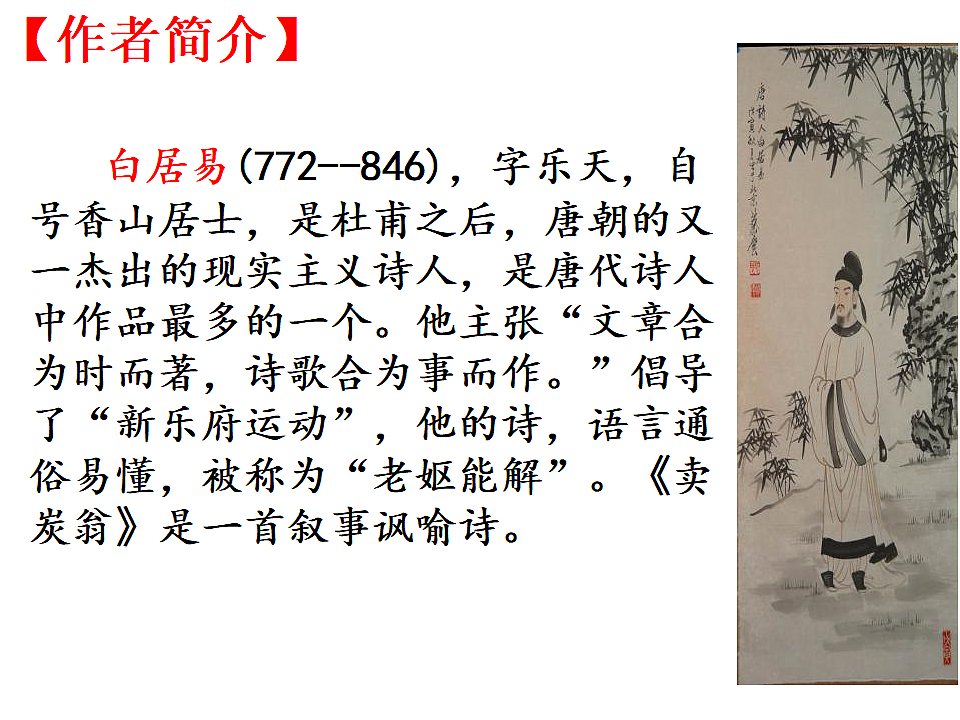 【作者简介】
白居易(772--846)，字乐天，自
号香山居士，是杜甫之后，唐朝的又
一杰出的现实主义诗人，是唐代诗人
中作品最多的一个。他主张“文章合
为时而著，诗歌合为事而作。”倡导
了“新乐府运动”，他的诗，语言通
俗易懂，被称为“老妪能解”。《卖
炭翁》是一首叙事讽喻诗。
唐诗人白居易